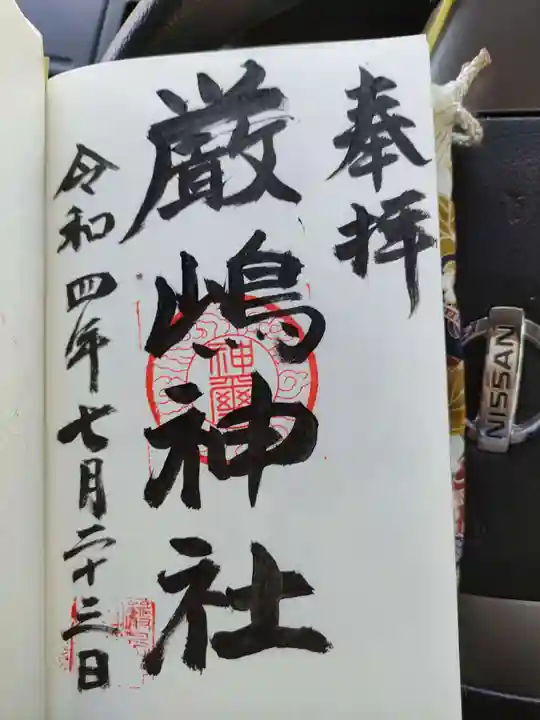 奉拝
厳嶋神社
令和四年七月二十三日
神璽
NISSAN